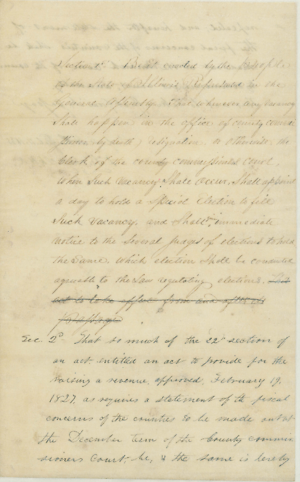 Section 1st Be it enacted by the People of the
State of Illinois Represented in the
General Assembly, That whenever any vacancy
shall happen in the office of county commis
by death, resignation or otherwise, the
clerk of the county commissioners court,
when such vacancy shall occur, shall appoint
a day to hold a special election to fill
such vacancy, and shall immediate
notice to the several judges of elections to hold
the same. which election shall be conducted
agreeable to the Law regulating elections.
act to take effect from and after its
passage
Sec 2d. That so much of the 22d section of
an act entitled an act to provide for the
raising a revenue, approved, February 19,
1827, as requires a statement of the fiscal
concerns of the counties to be made out at
the December term of the County commis
sioners court be, & the same is hereby